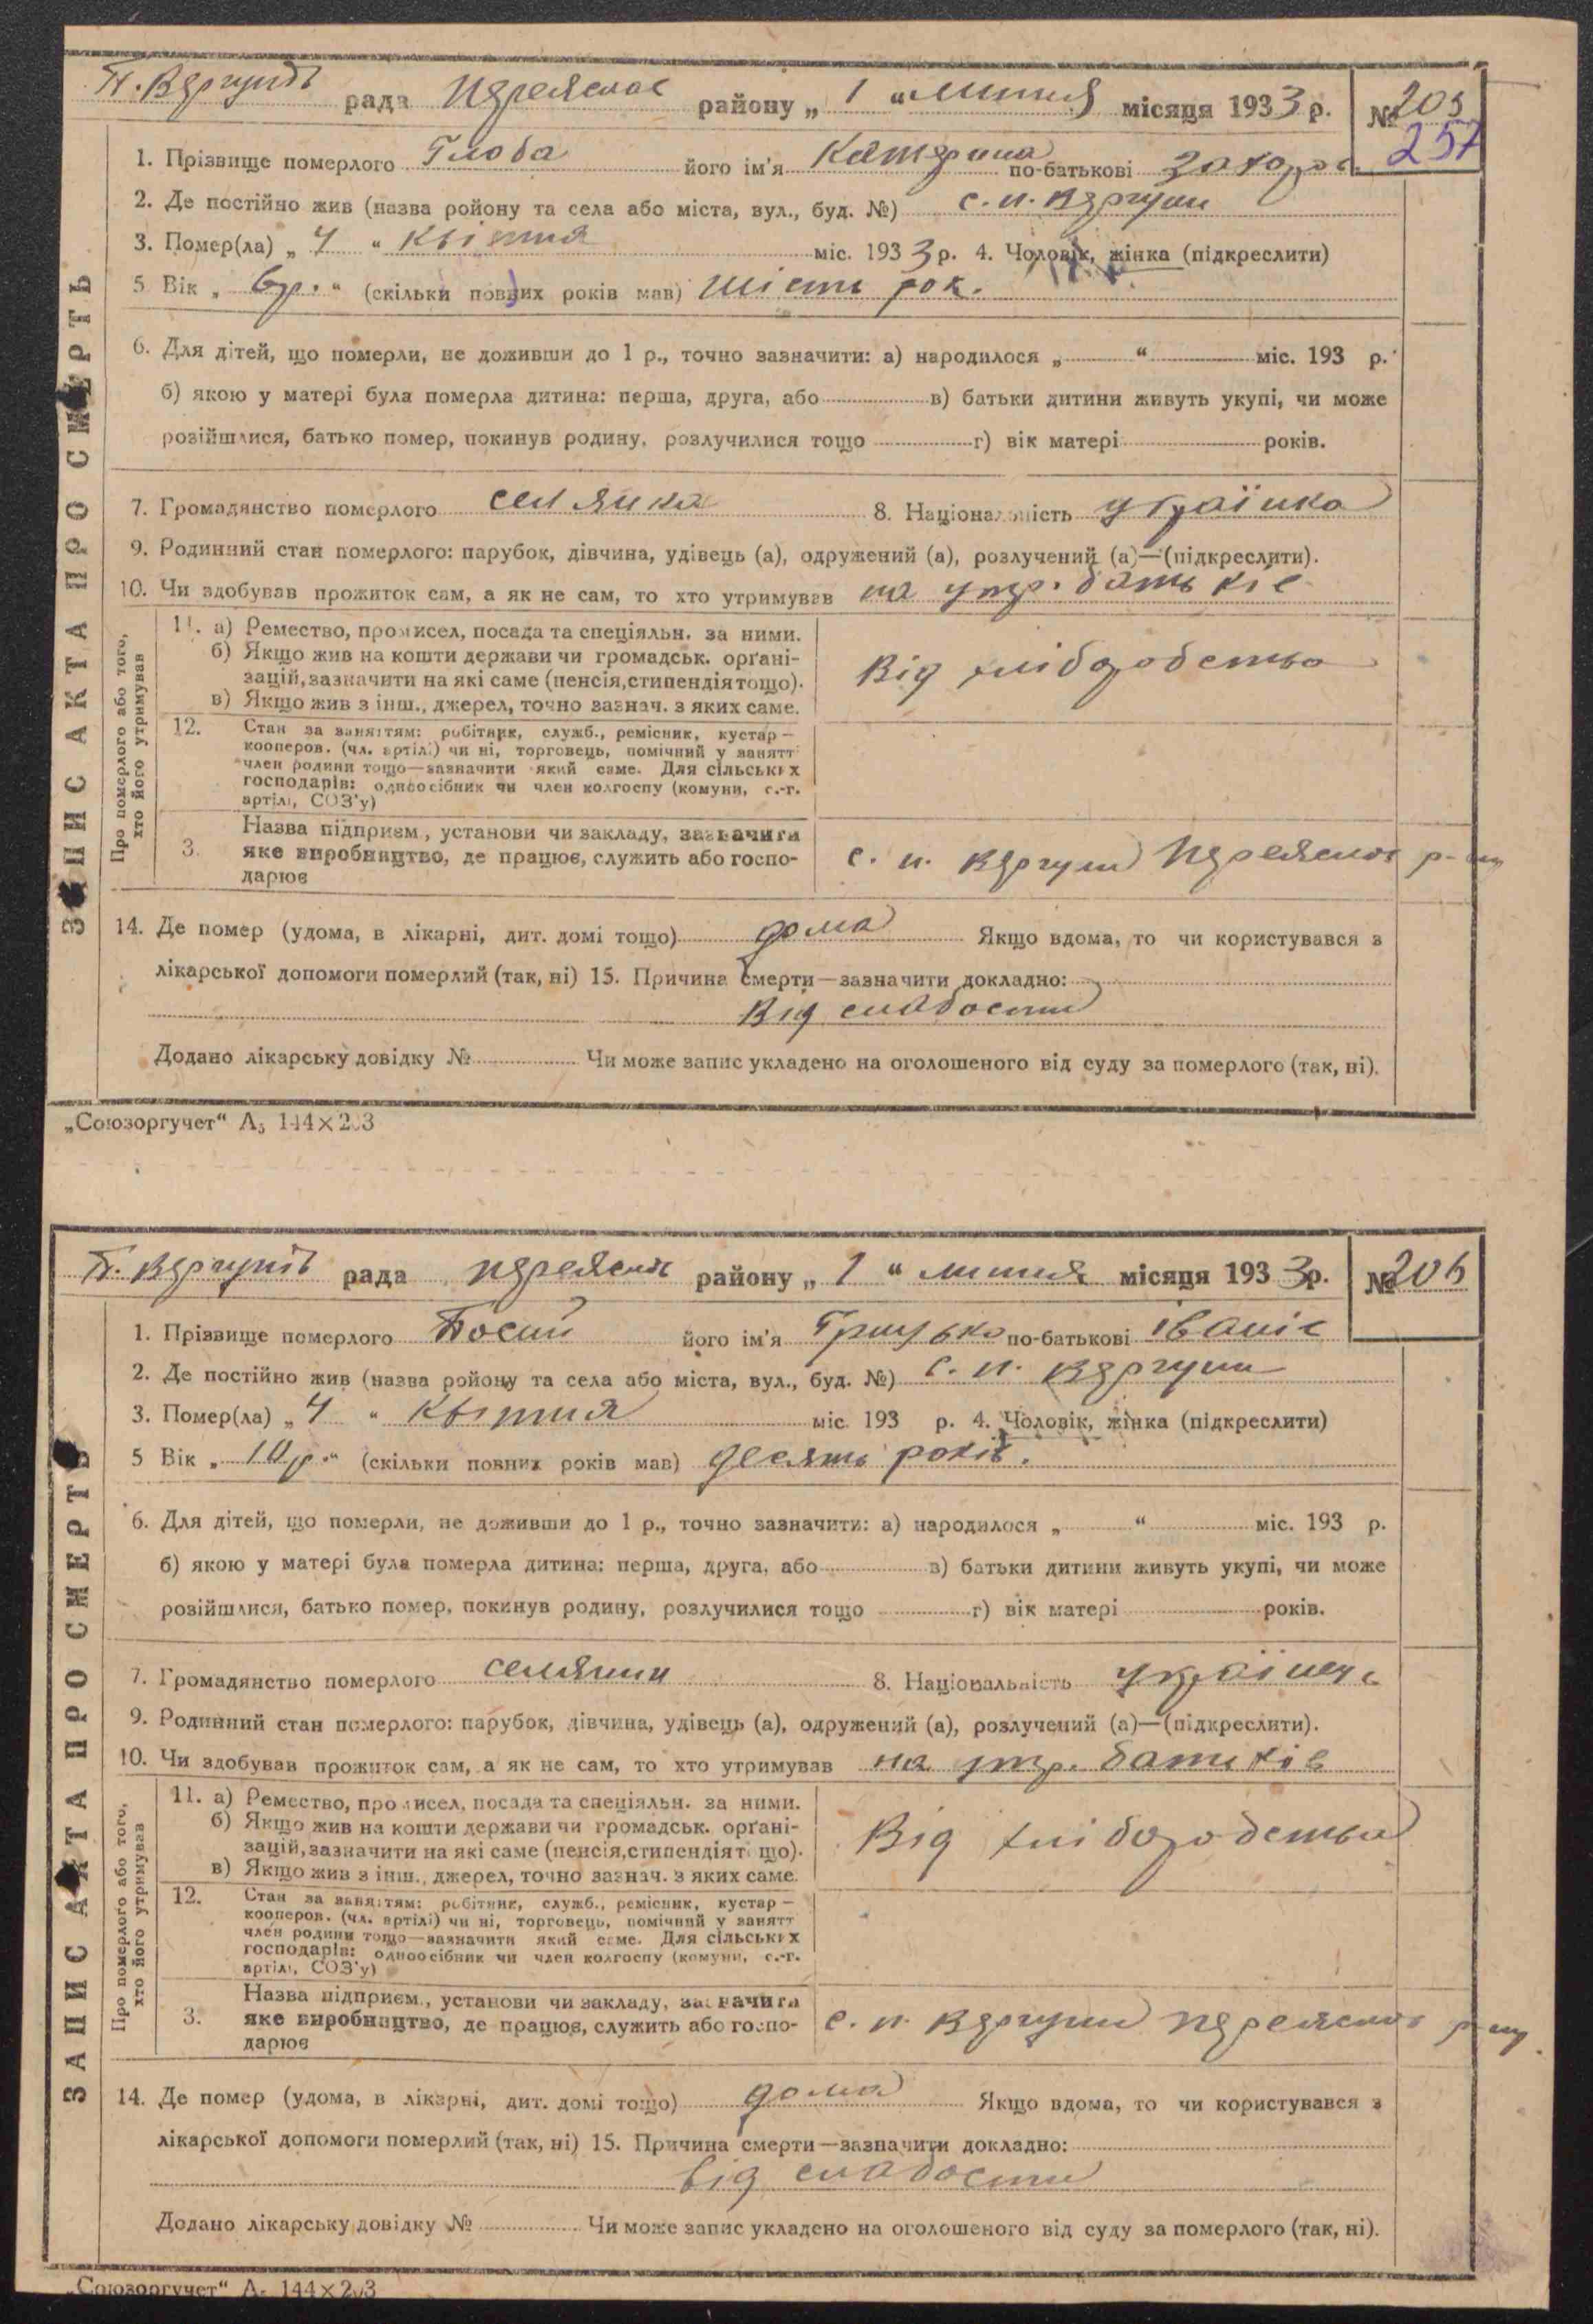 ЗАПИС АКТА ПРО СМЕРТЬ
П. Вергунів рада Переяслав району „ 1 “ липня місяця 1933 р. № 205
257
1. Прізвище померлого Глоба його ім'я Катерина по-батькові Захаров.
2. Де постійно жив (назва ройону та села або міста, вул., буд. №) с. п. Вергуни
3. Помер(ла) „ 4 “ квітня міс. 1933 р. 4. Чоловік, жінка (підкреслити)
5 Вік „ 6 р. “ (скільки повних років мав) шість рок.
6. Для дітей, що померли, не доживши до 1 р., точно зазначити: а) народилося „ “ міс. 193 р.
б) якою у матері була померла дитина: перша, друга, або в) батьки дитини живуть укупі, чи може
розійшлися, батько помер, покинув родину, розлучилися тощо г) вік матері років.
7. Громадянство померлого селянка 8. Національність українка
9. Родинний стан померлого: парубок, дівчина, удівець (а), одружений (а), розлучений (а)—(підкреслити).
10. Чи здобував прожиток сам, а як не сам, то хто утримував на утр. батьків
Про померлого або того, хто його утримував
11. а) Ремество, промисел, посада та спеціяльн. за ними.
б) Якщо жив на кошти держави чи громадськ. орґані-
зацій, зазначити на які саме (пенсія, стипендія тощо).
в) Якщо жив з інш., джерел, точно зазнач. з яких саме.
Від хліборобства
12. Стан за заняттям: робітник, служб., ремісник, кустар —
кооперов. (чл. артілі) чи ні, торговець, помічний у занятт
член родини тощо—зазначити який саме. Для сільських
господарів: одноосібник чи член колгоспу (комуни, с.-г.
артілі, СОЗ'у)
3. Назва підприєм., установи чи закладу, зазначити
яке виробництво, де працює, служить або госпо-
дарює
с. п. Вергуни Переяслав р-ну
14. Де помер (удома, в лікарні, дит. домі тощо) дома Якщо вдома, то чи користувався з
лікарської допомоги померлий (так, ні) 15. Причина смерти—зазначити докладно:
Від слабости
Додано лікарську довідку № Чи може запис укладено на оголошеного від суду за померлого (так, ні).
„Союзоргучет“ А5 144×203
ЗАПИС АКТА ПРО СМЕРТЬ
П. Вергунів рада Переяслав району „ 1 “ липня місяця 1933 р. № 206
1. Прізвище померлого Босий його ім'я Грицько по-батькові Іванів
2. Де постійно жив (назва ройону та села або міста, вул., буд. №) с. п. Вергуни
3. Помер(ла) „ 4 “ квітня міс. 193 р. 4. Чоловік, жінка (підкреслити)
5 Вік „ 10 р. “ (скільки повних років мав) десять років.
6. Для дітей, що померли, не доживши до 1 р., точно зазначити: а) народилося „ “ міс. 193 р.
б) якою у матері була померла дитина: перша, друга, або в) батьки дитини живуть укупі, чи може
розійшлися, батько помер, покинув родину, розлучилися тощо г) вік матері років.
7. Громадянство померлого селянин 8. Національність українець
9. Родинний стан померлого: парубок, дівчина, удівець (а), одружений (а), розлучений (а)—(підкреслити).
10. Чи здобував прожиток сам, а як не сам, то хто утримував на утр. батьків
Про померлого або того, хто його утримував
11. а) Ремество, промисел, посада та спеціяльн. за ними.
б) Якщо жив на кошти держави чи громадськ. орґані-
зацій, зазначити на які саме (пенсія, стипендія тощо).
в) Якщо жив з інш., джерел, точно зазнач. з яких саме.
Від хліборобства
12. Стан за заняттям: робітник, служб., ремісник, кустар —
кооперов. (чл. артілі) чи ні, торговець, помічний у занятт
член родини тощо—зазначити який саме. Для сільських
господарів: одноосібник чи член колгоспу (комуни, с.-г.
артілі, СОЗ'у)
3. Назва підприєм., установи чи закладу, зазначити
яке виробництво, де працює, служить або госпо-
дарює
с. п. Вергуни Переяслав р-ну.
14. Де помер (удома, в лікарні, дит. домі тощо) дома Якщо вдома, то чи користувався з
лікарської допомоги померлий (так, ні) 15. Причина смерти—зазначити докладно:
Від слабости
Додано лікарську довідку № Чи може запис укладено на оголошеного від суду за померлого (так, ні).
„Союзоргучет“ А5 144×203